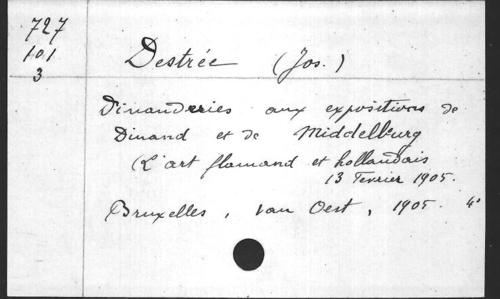 727
101
3
Destrée (Jos.)
Dinanderies aux expositions de
Dinand et de Middelburg
(L'art flamand et hollandais
13 Fevrier 1905.
Bruxelles, van Oest, 1905. 4°